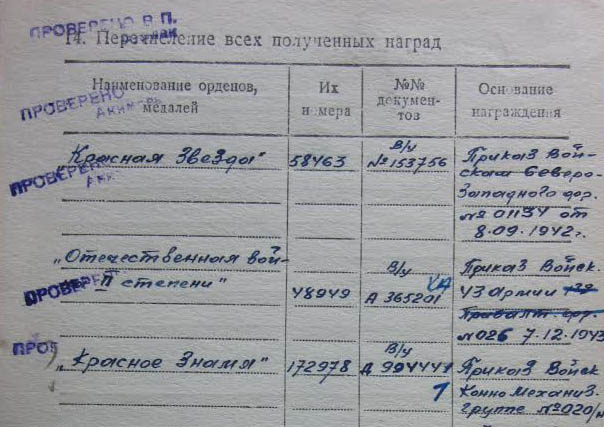 ПРОВЕРЕНО В.П.
14. Перечисление всех полученных наград
Наименование орденов, медалей
Их номера
№№ документов
Основание награждения
ПРОВЕРЕНО
"Красная Звезда"
58463
В/у
№153756
Приказ Вой-
скам Северо-
Западного фр.
№ 01134 от
8.09.1942г.
ПРОВЕРЕНО
"Отечественная вой-
II степени"
48949
В/у
А 365201
Приказ Войск.
43 Армии
№026 7.12.1943
ПРОВЕРЕ
"Красное Знамя"
172978
В/у
Приказ Войск
Конно Механиз.
Группе №020/н
ПРОВ